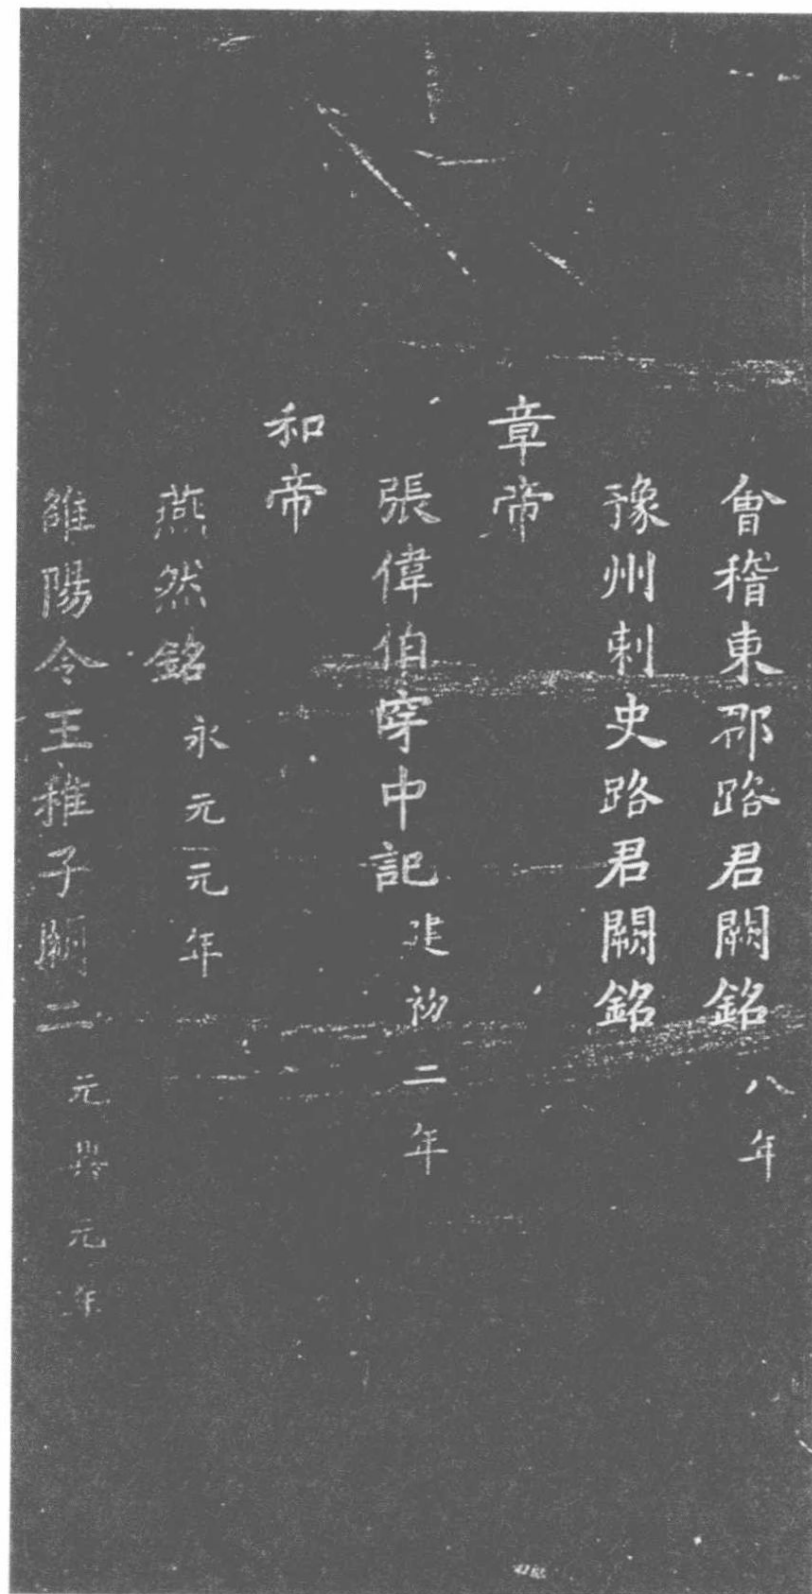 會稽東部路君闕銘 八年
豫州刺史路君闕銘
章帝
張偉伯穿中記 建初二年
和帝
燕然銘 永元元年
雒陽令王稚子闕二 元興元年